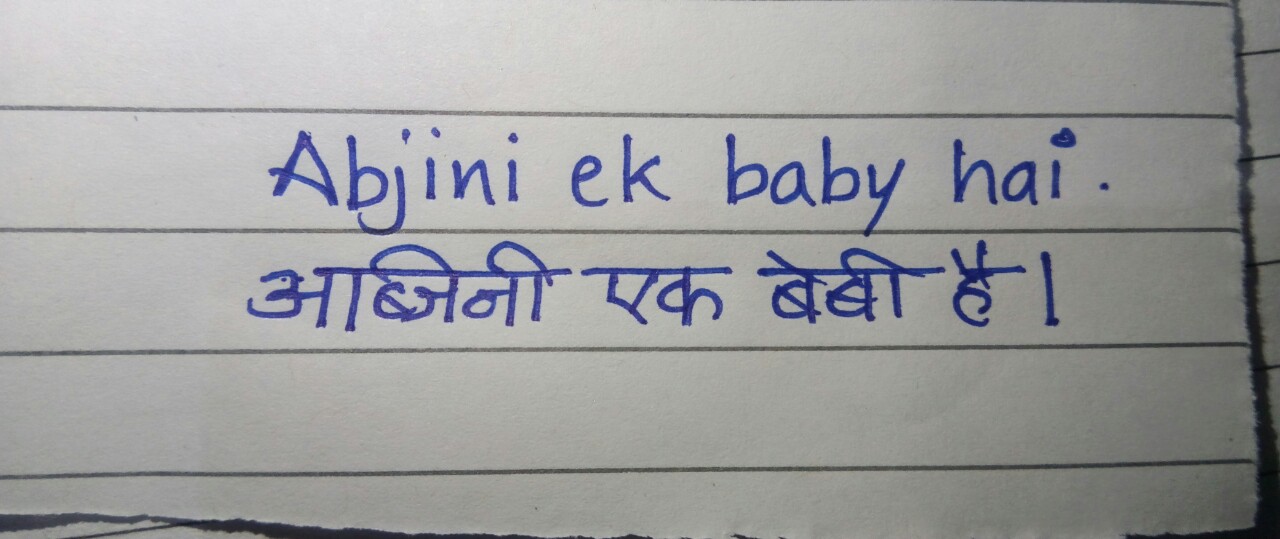 Abjini ek baby hai.
आब्जिनी एक बेबी है।